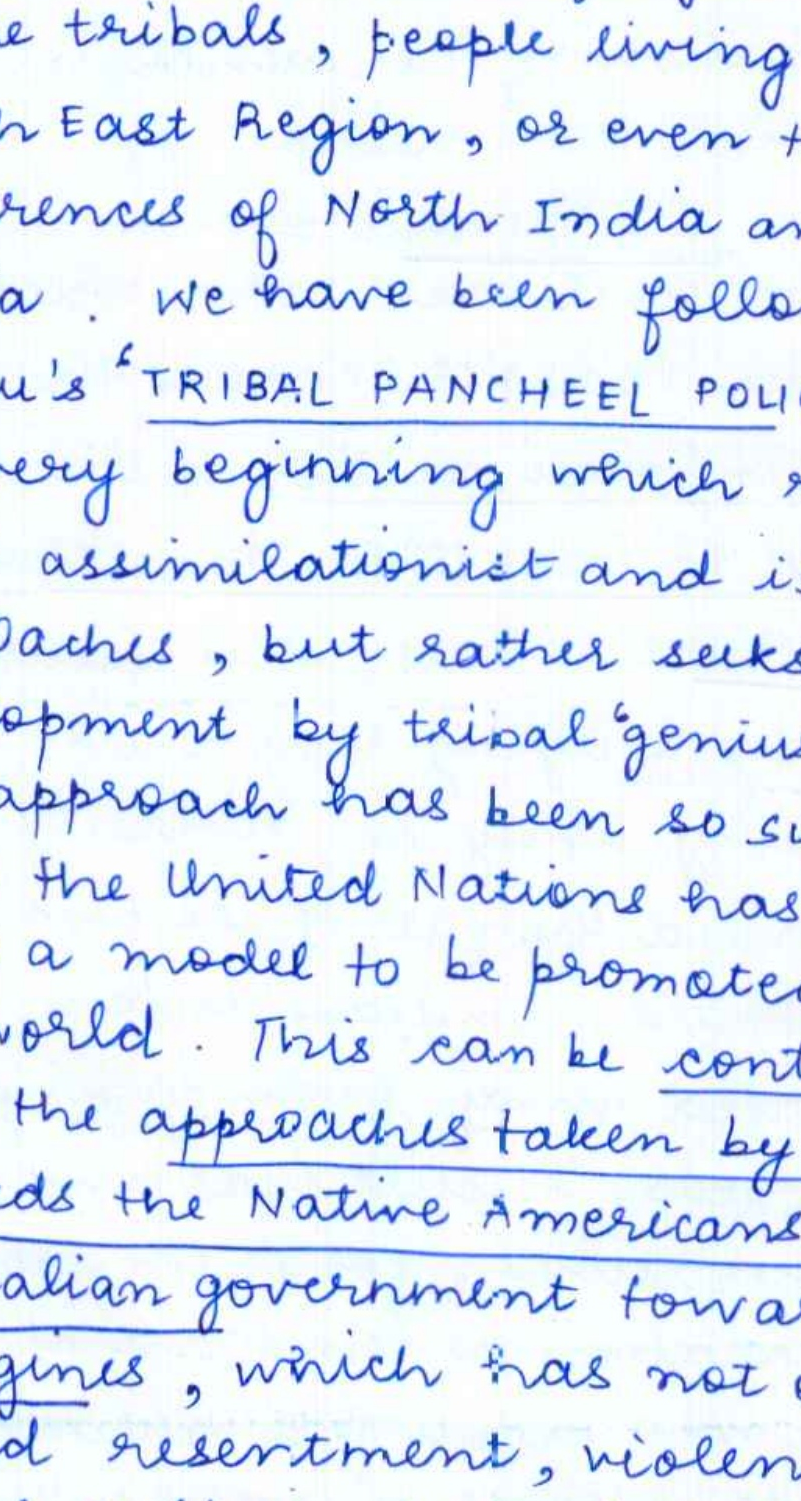 e tribals, people living
h East Region, or even t
rences of North India an
a. We have been follo
u's 'TRIBAL PANCHEEL POLI
ery beginning which
assimilationist and is
oaches, but rather seeks
opment by tribal 'genius
approach has been so su
the United Nations has
a model to be promoted
world. This can be cont
the approaches taken by
ds the Native Americans
alian government towa
gines, which has not
d resentment, violen